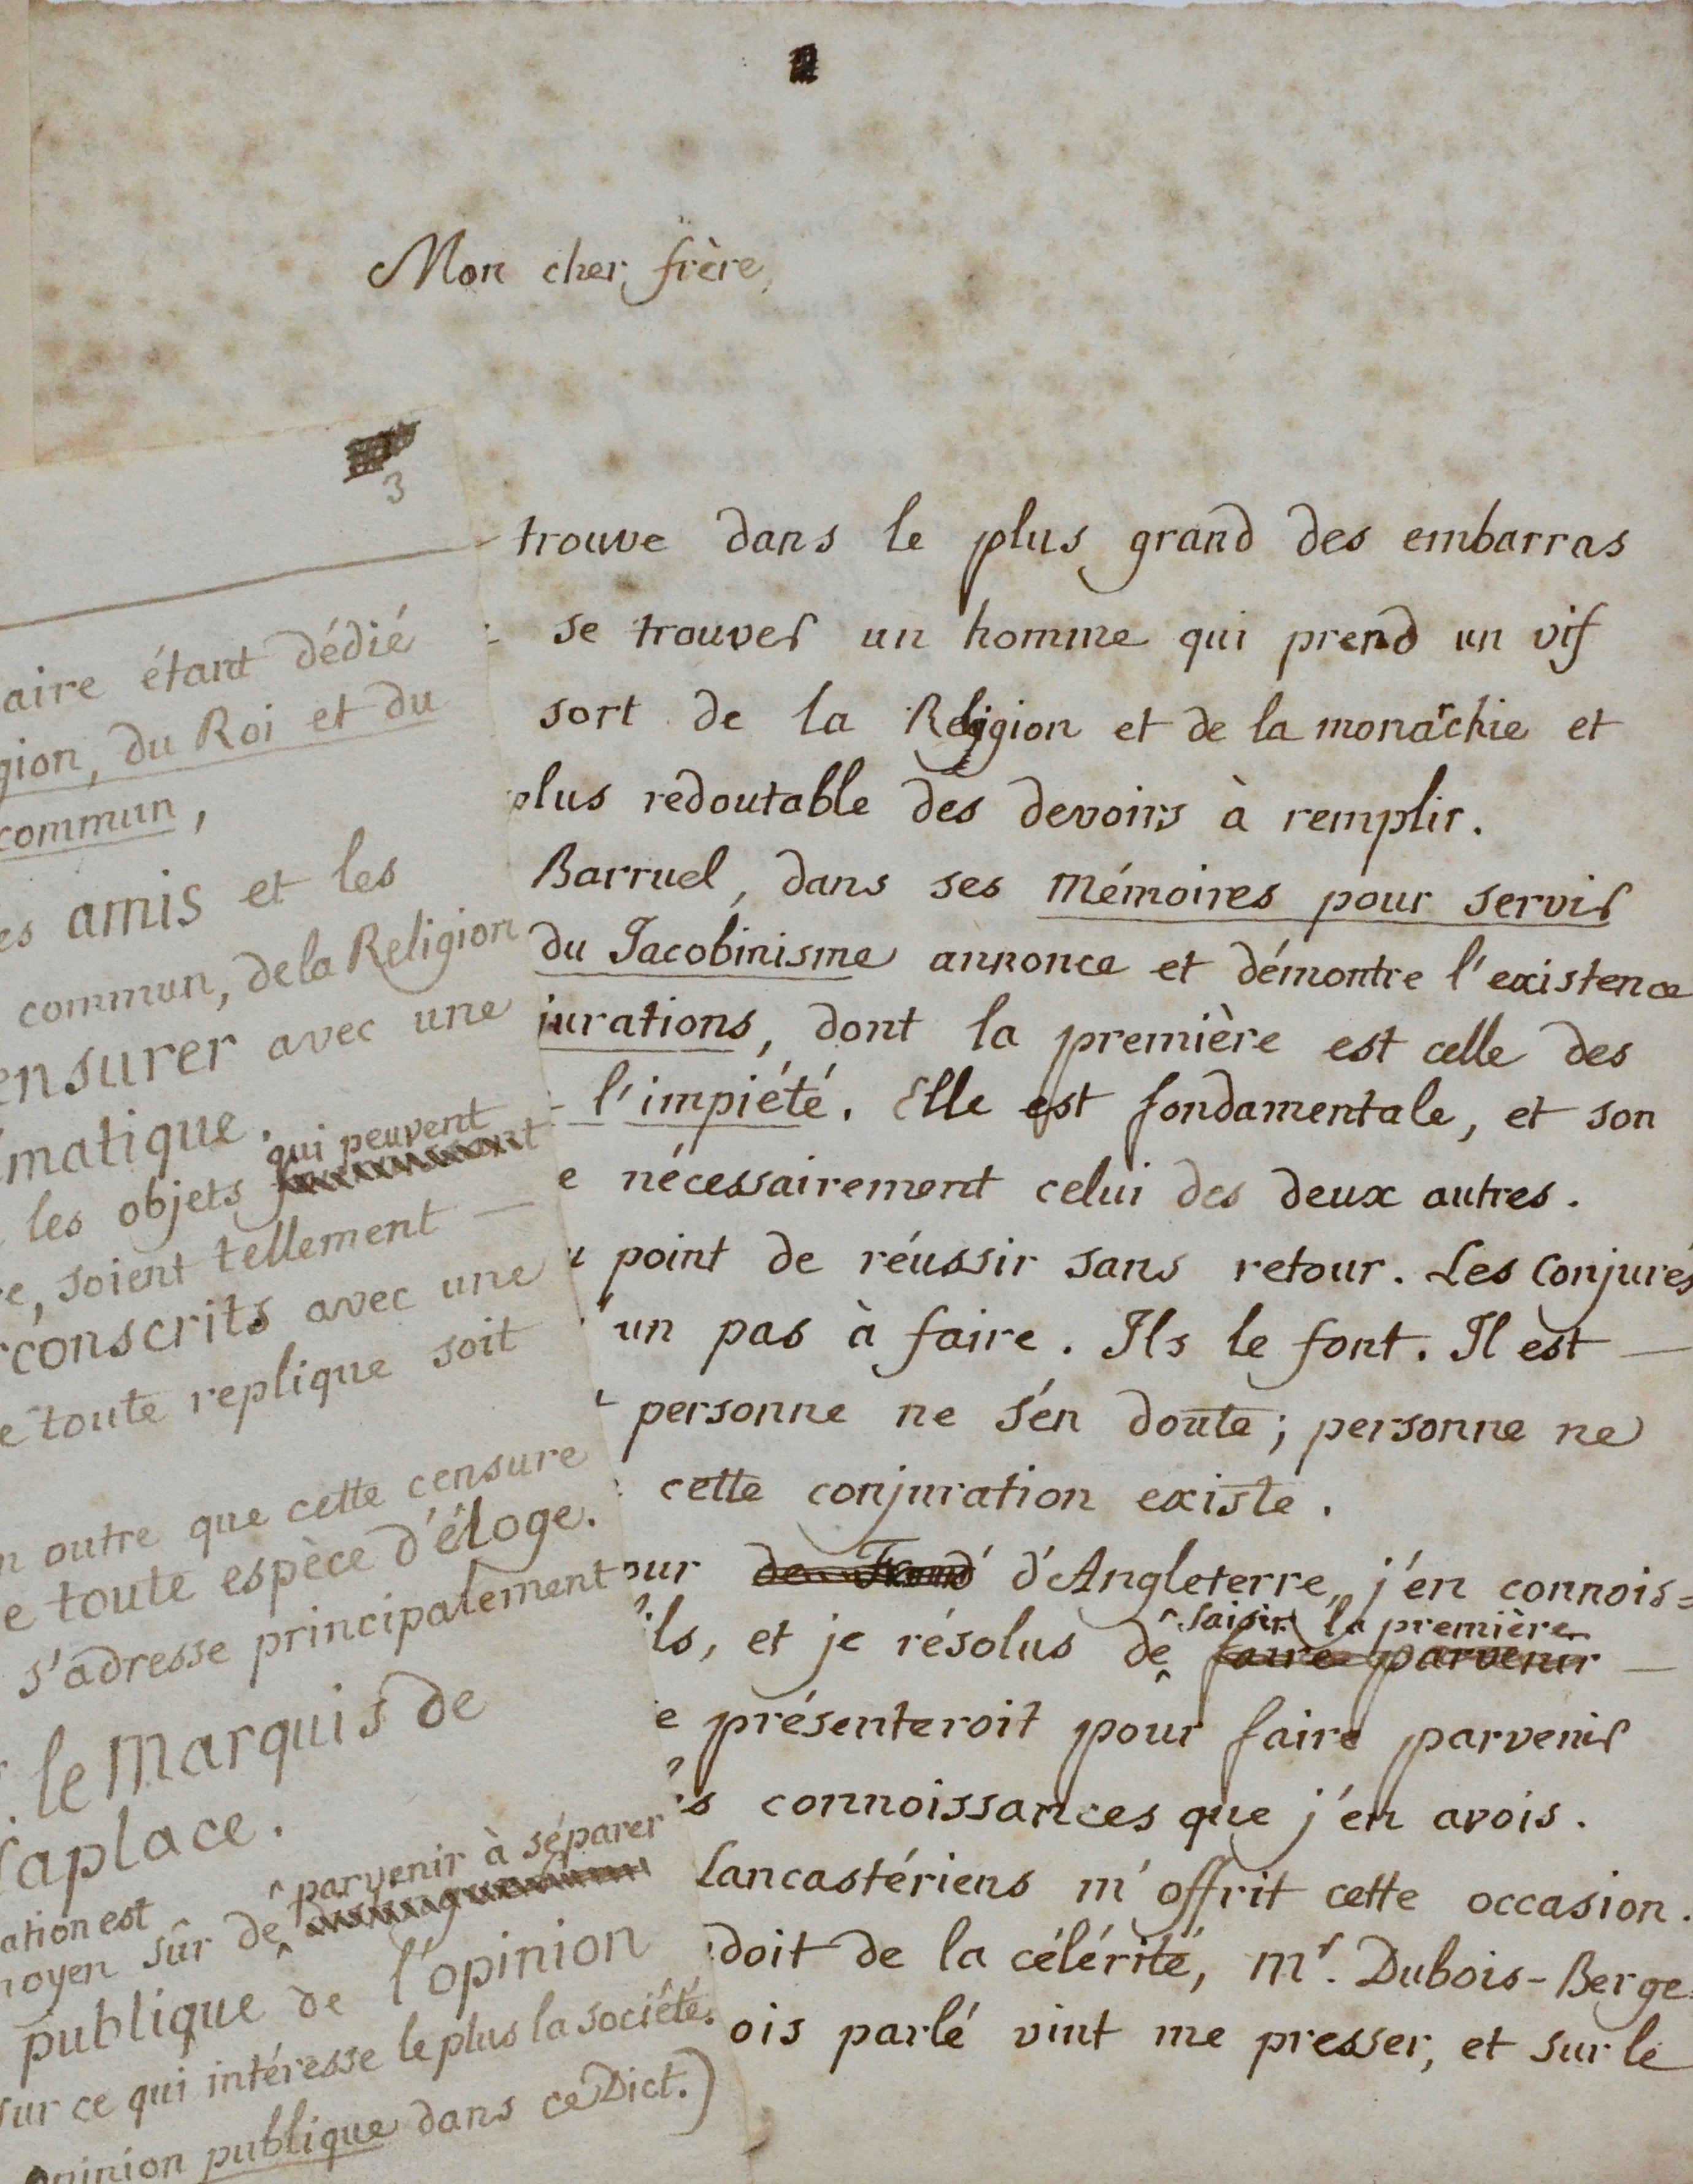 Mon cher frère,
trouve dans le plus grand des embarras
se trouver un homme qui prend un vif
sort de la Religion et de la monarchie et
plus redoutable des devoirs à remplir.
Barruel, dans ses mémoires pour servir
du Jacobinisme annonce et démontre l'existence
jurations, dont la première est celle des
l'impiété. Elle est fondamentale, et son
e nécessairement celui des deux autres.
point de réussir sans retour. Les Conjurés
un pas à faire. Ils le font. Il est —
personne ne s'en doute; personne ne
cette conjuration existe.
our d'Angleterre, j'en connois=
ils, et je résolus de saisir la première
faire parvenir —
e présenteroit pour faire parvenir
s connoissances que j'en avois.
Lancastériens m'offrit cette occasion.
doit de la célérité, Mr. Dubois-Berge=
ois parlé vint me presser, et sur le
3
aire étant dédié
gion, du Roi et du
commun,
es amis et les
commun, de la Religion
ensurer avec une
matique.
qui peuvent
les objets
re, soient tellement —
rconscrits avec une
e toute replique soit
n outre que cette censure
e toute espèce d'éloge.
s'adresse principalement
. le Marquis de
Laplace.
ation est
parvenir à séparer
moyen sûr de
publique de l'opinion
sur ce qui intéresse le plus la société.
opinion publique dans ce Dict.)